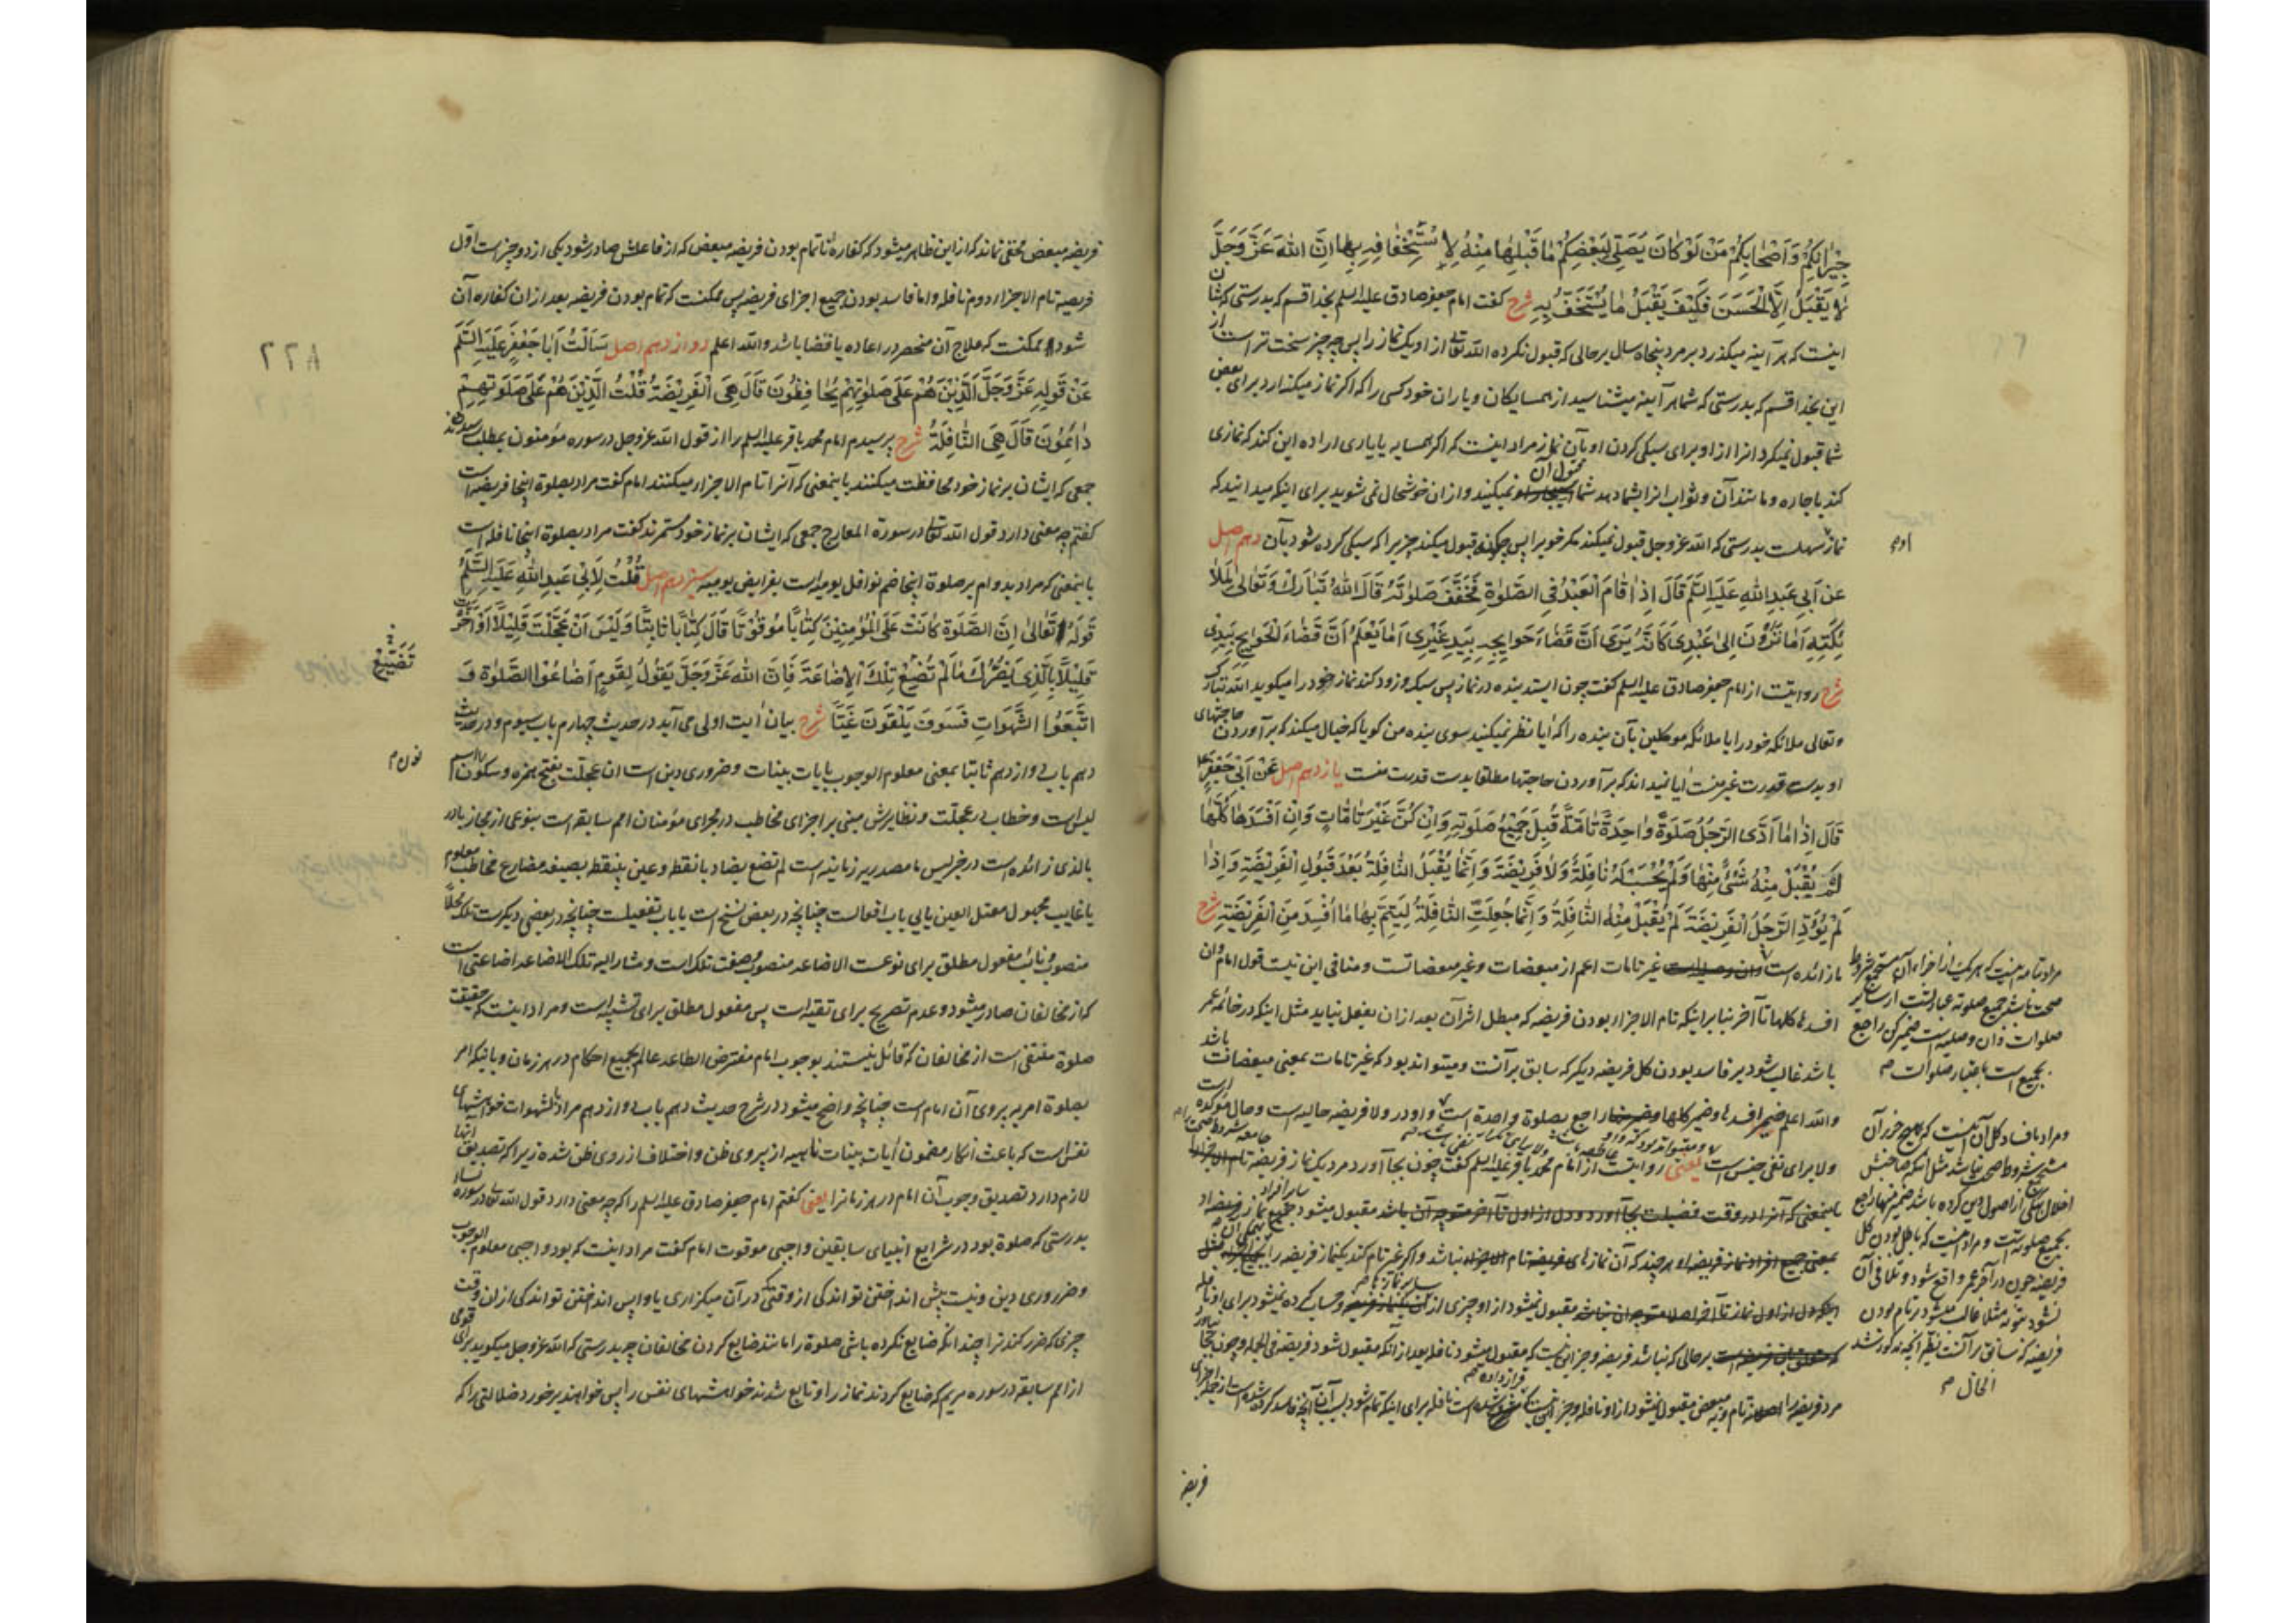 جِيرَانِكُمْ وَأَصْحَابِكُمْ مَنْ لَوْ كَانَ يُصَلِّي لِبَعْضِكُمْ مَا قَبِلَهَا مِنْهُ لِاسْتِخْفَافِهِ بِهَا إِنَّ اللهَ عَزَّ وَجَلَّ
لَا يَقْبَلُ إِلَّا الْحَسَنَ فَكَيْفَ يَقْبَلُ مَا يُسْتَخَفُّ بِهِ شرح کفت امام جعفر صادق علیه السلم بخدا قسم که بدرستی که شان
اینست که هر آینه میکذرد بر مرد پنجاه سال بر حالی که قبول نکرده الله تعالی از او یک نماز را پس چه چیز سخت تر است از
این بخدا قسم که بدرستی که شما هر آینه میشناسید از همسایکان و یاران خود کسی را که اکر نماز میکذارد برای بعض
شما قبول نمیکرد آنرا از او برای سبکی کردن او بآن نماز مراد اینست که اکر همسایه یا یاری اراده این کند که نمازی
کند باجاره و مانند آن و ثواب انرا بشما دهد شما قبول آن نمیکنید و از ان خوشحال نمی شوید برای اینکه میدانید که
نماز سهلست بدرستی که الله عز وجل قبول نمیکند مکر خوبرا پس چکونه قبول میکند چیزیرا که سبکی کرده شود بآن دهم اصل
عَنْ أَبِي عَبْدِ اللهِ عَلَيْهِ السَّلَمُ قَالَ إِذَا قَامَ الْعَبْدُ فِي الصَّلَوٰةِ فَخَفَّفَ صَلَوٰتَهُ قَالَ اللهُ تَبَارَكَ وَتَعَالَى لِمَلَا
ئِكَتِهِ أَمَا تَرَوْنَ إِلَى عَبْدِي كَأَنَّهُ يَرَى أَنَّ قَضَاءَ حَوَائِجِهِ بِيَدِ غَيْرِي أَمَا يَعْلَمُ أَنَّ قَضَاءَ الْحَوَائِجِ بِيَدِي
شرح روایتست از امام جعفر صادق علیه السلم کفت چون ایستد بنده در نماز پس سبک و زود کند نماز خود را میکوید الله تبارک
و تعالی ملائکه خود را یا ملائکه موکلین بآن بنده را که آیا نظر نمیکنید سوی بنده من کویا که خیال میکند که بر آوردن حاجتهای
او بدست قدرت غیر منست آیا نمیداند که بر آوردن حاجتها مطلقا بدست قدرت منست یازدهم اصل عَنْ أَبِي جَعْفَرٍ
قَالَ إِذَا مَا أَدَّى الرَّجُلُ صَلَوةً وَاحِدَةً تَامَّةً قُبِلَ جَمِيعُ صَلَوتِهِ وَإِنْ كُنَّ غَيْرَ تَامَّاتٍ وَإِنْ أَفْسَدَهَا كُلَّهَا
لَمْ يُقْبَلْ مِنْهُ شَيْءٌ مِنْهَا وَلَمْ يُحْسَبْ لَهُ نَافِلَةٌ وَلَا فَرِيضَةٌ وَإِنَّمَا يُقْبَلُ النَّافِلَةُ بَعْدَ قَبُولِ الْفَرِيضَةِ وَإِذَا
لَمْ يُؤَدِّ الرَّجُلُ الْفَرِيضَةَ لَمْ يُقْبَلْ مِنْهُ النَّافِلَةُ وَإِنَّمَا جُعِلَتِ النَّافِلَةُ لِيَتِمَّ بِهَا مَا أُفْسِدَ مِنَ الْفَرِيضَةِ شرح
ما زائده است غیر تامات اعم از مبعضات و غیر مبعضاتست و منافی این نیست قول امام وان
افسدها کلها تا آخر بنابر اینکه تام الاجزاء بودن فریضه که مبطل اثر آن بعد از ان بفعل نیاید مثل اینکه در خاتمه عمر
باشد غالب شود بر فاسد بودن کل فریضه دیکر که سابق بر آنست و میتواند بود که غیر تامات بمعنی مبعضات باشد
والله اعلم ضمیر افسدها و ضمیر کلها راجع بصلوة واحدة است و واو در ولا فریضه حالیه است و حال مؤکده است
ولا برای نفی جنس است یعنی روایتست از امام محمد باقر علیه السلم کفت چون بجا آورد مرد یک نماز فریضه تام
باینمعنی که آنرا در وقت فضیلت بجا آورد و دل از اول تا آخر متوجه آن باشد مقبول میشود جمیع نماز فریضه او
بمعنی جمیع افراد نماز فریضه او هر چند که آن نمازهای فریضه تام الاجزاء نباشد و اکر غیر تام کند یکنماز فریضه را
مقبول نمیشود از او چیزی از و حساب کرده نمیشود برای او نافله
بر حالی که نباشد فریضه و جز این نیست که مقبول میشود نافله بعد از آنکه مقبول شود فریضه فی الجمله و چون بجا نیاورد
مرد فریضه را تام و نه مبعض مقبول نمیشود از او نافله و جز این نیست که است نافله برای اینکه تمام شود بسبب آن آنچه فاسد کرده شده است از
اوم
مراد بتامه اینست که هر یک از اجزاء آن مستجمع شروط
صحت باشد جمیع صلوته عبارتست از سایر
صلوات وان وصلیه است ضمیر کن راجع
بجمیع است باعتبار صلوات م
و مراد بافساد کل آن اینست که هیچ جزء آن
مستجمع شروط صحت نباشد مثل آنکه صاحبش
اخلال باصلی از اصول دین کرده باشد ضمیر منها راجع
بجمیع صلوته است و مراد اینست که باطل بودن کل
فریضه چون در آخر عمر واقع شود و تلافی آن
نشود بتوبه مثلا غالب میشود بر تام بودن
فریضه که سابق بر آنست نظیر آنچه مذکور شد
الحال م
فریضه
فریضه مبعض مخفی نماند که از این ظاهر میشود که کفاره ناتمام بودن فریضه مبعض که از فاعلش صادر شود یکی از دو چیز است اول
فریضه تام الاجزاء دوم نافله و اما فاسد بودن جمیع اجزای فریضه پس ممکنست که تمام بودن فریضه بعد از ان کفاره آن
شود و ممکنست که علاج آن منحصر در اعاده یا قضا باشد والله اعلم دوازدهم اصل سَأَلْتُ أَبَا جَعْفَرٍ عَلَيْهِ السَّلَمُ
عَنْ قَوْلِهِ عَزَّ وَجَلَّ الَّذِينَ هُمْ عَلَى صَلَوٰتِهِمْ يُحَافِظُونَ قَالَ هِيَ الْفَرِيضَةُ قُلْتُ الَّذِينَ هُمْ عَلَى صَلَوتِهِمْ
دَائِمُونَ قَالَ هِيَ النَّافِلَةُ شرح پرسیدم امام محمد باقر علیه السلم را از قول الله عز وجل در سوره مؤمنون بمطلب رسیدند
جمعی که ایشان بر نماز خود محافظت میکنند باینمعنی که آنرا تام الاجزاء میکنند امام کفت مراد بصلوة اینجا فریضه است
کفتم چه معنی دارد قول الله تعالی در سورة المعارج جمعی که ایشان بر نماز خود مستمرند کفت مراد بصلوة اینجا نافله است
باینمعنی که مراد بدوام بر صلوة اینجا ضم نوافل یومیه است بفرایض یومیه سیزدهم اصل قُلْتُ لِأَبِي عَبْدِ اللهِ عَلَيْهِ السَّلَمُ
قَوْلُهُ تَعَالَى إِنَّ الصَّلَوةَ كَانَتْ عَلَى الْمُؤْمِنِينَ كِتَابًا مَوْقُوتًا قَالَ كِتَابًا ثَابِتًا وَلَيْسَ أَنْ عَجَّلْتَ قَلِيلًا أَوْ أَخَّرْتَ
قَلِيلًا بِالَّذِي يَضُرُّكَ مَا لَمْ تُضَيِّعْ تِلْكَ الْإِضَاعَةَ فَإِنَّ اللهَ عَزَّ وَجَلَّ يَقُولُ لِقَوْمٍ أَضَاعُوا الصَّلَوٰةَ وَ
اتَّبَعُوا الشَّهَوَاتِ فَسَوْفَ يَلْقَوْنَ غَيًّا شرح بیان آیت اولی می آید در حدیث چهارم باب سیوم و در حدیث
دهم باب دوازدهم ثابتا بمعنی معلوم الوجوب بآیات بینات و ضروری دین است ان عجلت بفتح همزه و سکون اسم
لیس است و خطاب در عجلت و نظایرش مبنی بر اجرای مخاطب در مجرای مؤمنان امم سابقه است بنوعی از مجاز با در
بالذی زائده است در خبر لیس ما مصدریه زمانیه است لم تضع بضاد بانقطه و عین بینقطه بصیغه مضارع مخاطب معلوم
یا غایب مجهول معتل العین یایی باب افعالست چنانچه در بعض نسخ است یا باب تفعیلست چنانچه در بعضی دیکرست تلک محلا
منصوب و نائب مفعول مطلق برای نوعست الاضاعه منصوب و صفت تلک است و مشار الیه تلک الاضاعه اضاعتی است
که از مخالفان صادر میشود و عدم تصریح برای تقیه است پس مفعول مطلق برای تشبیه است و مراد اینست که حقیقت
صلوة منتفی است از مخالفان که قائل نیستند بوجوب امام مفترض الطاعه عالم بجمیع احکام در هر زمان و باینکه امر
بصلوة امر به پیروی آن امام است چنانچه واضح میشود در شرح حدیث دهم باب دوازدهم مراد بشهوات خواهشهای
نفس است که باعث انکار مضمون آیات بینات ناهیه از پیروی ظن و اختلاف از روی ظن شده زیرا که تصدیق انها
لازم دارد تصدیق وجوب آن امام در هر زمانرا یعنی کفتم امام جعفر صادق علیه السلم را که چه معنی دارد قول الله تعالی در سوره نساء
بدرستی که صلوة بود در شرایع انبیای سابقین واجبی موقوت امام کفت مراد اینست که بود واجبی معلوم الوجوب
و ضروری دین و نیست پیش انداختن تو اندکی از وقتی که در آن میکزاری یا واپس انداختن تو اندکی از ان وقت
چیزی که ضرر کند ترا چندانکه ضایع نکرده باشی صلوة را مانند ضایع کردن مخالفان چه بدرستی که الله عز وجل میکوید برای قومی
از امم سابقه در سوره مریم که ضایع کردند نماز را و تابع شدند خواهشهای نفس را پس خواهند بر خورد ضلالتی را که
۲۲۸
تُضَيِّعْ
نون م